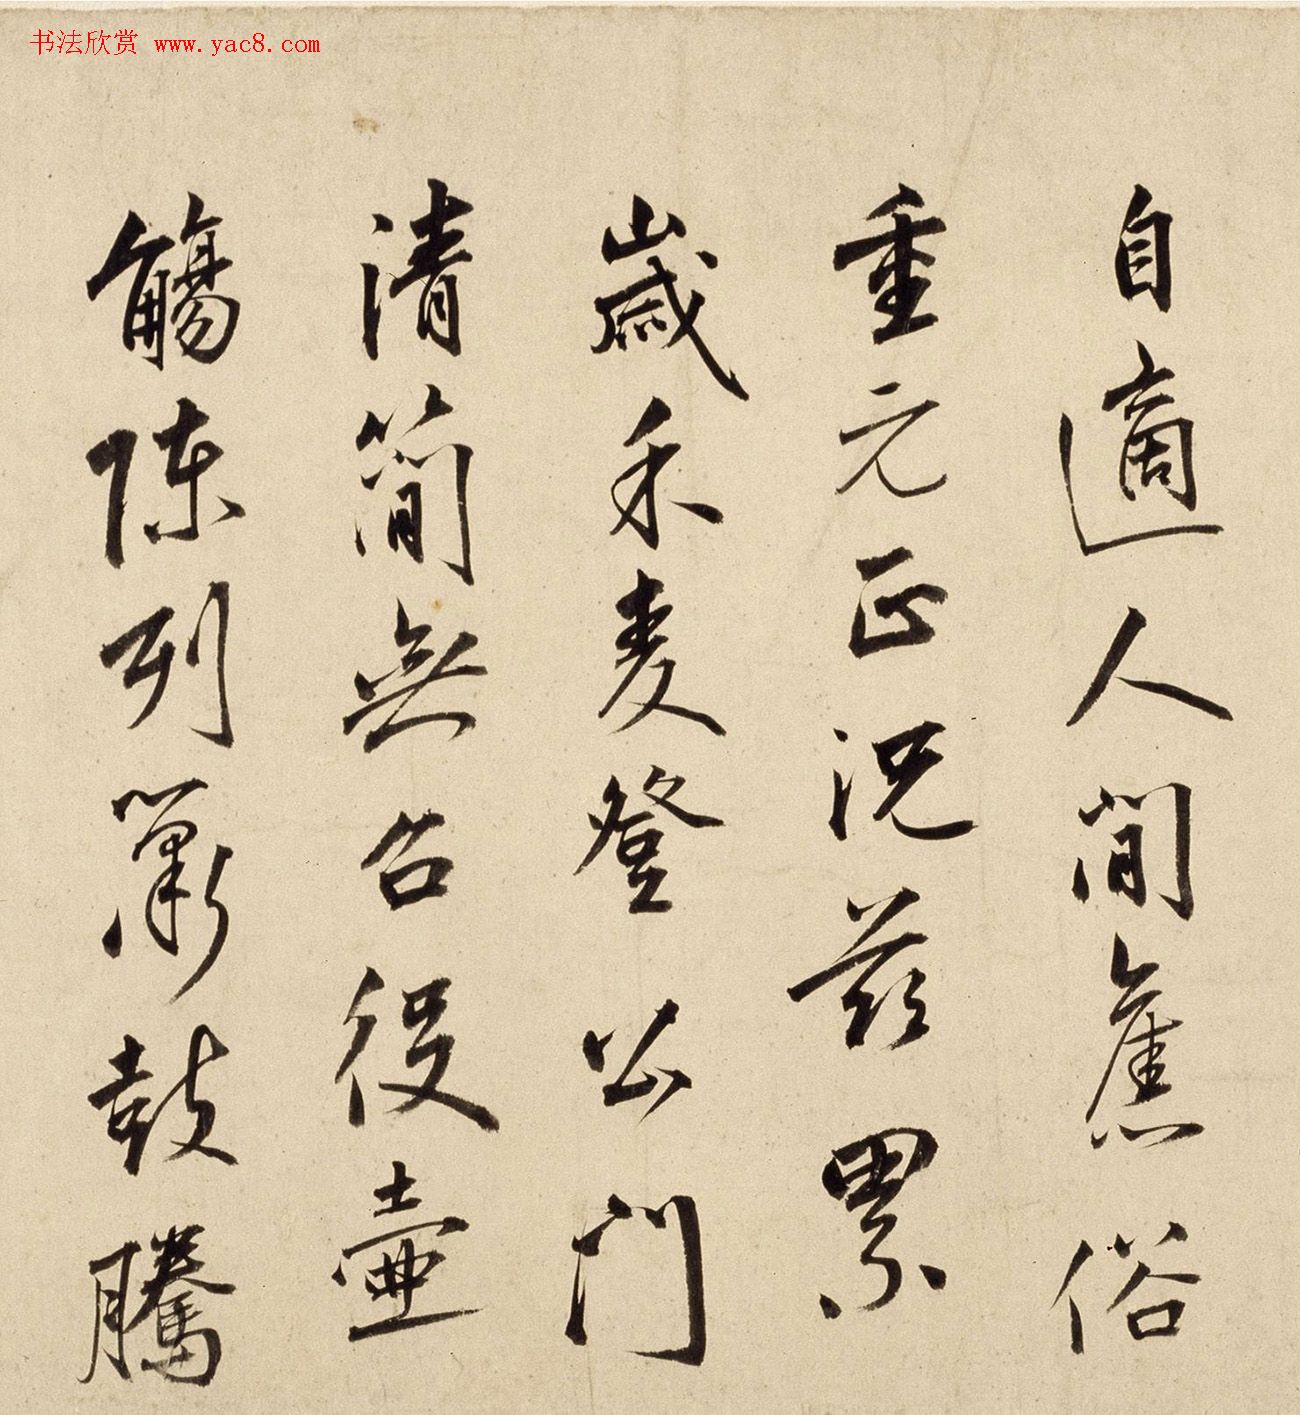 书法欣赏 www.yac8.com
自適人間舊俗
重元正況茲累
歲禾麦登公門
清簡無召役壷
觴陳列簫鼓騰